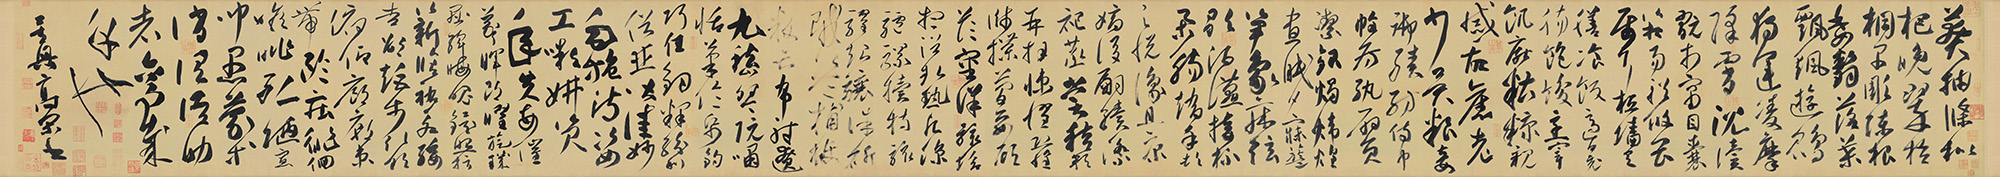 莽抽條枇
杷晚翠梧
桐早彫陳根
委翳落葉
飄颻遊鵾
獨運凌摩
絳霄耽讀
翫市寓目囊
箱易輶攸畏
屬耳垣牆具
膳飡飯適口充
腸飽飫烹宰
飢厭糟糠親
戚故舊老
少異粮妾
御績紡侍巾
帷房紈扇員
潔銀燭煒煌
晝眠夕寐籃
笋象床絃
歌酒讌接杯
舉觴矯手頓
足悅豫且康
嫡後嗣續祭
祀蒸嘗稽顙
再拜悚懼恐惶
牋牒簡要顧
答審詳骸垢
想浴執熱願涼
驢騾犢特駭
躍超驤誅斬
賊盜捕獲
叛亡布射遼
丸嵇琴阮嘯
恬筆倫紙鈞
巧任釣釋紛利
俗並皆佳妙
毛施淑姿
工嚬妍笑
年矢每催
羲暉朗曜旋璣
懸斡晦魄環照指
薪脩祜永綏
吉劭矩步引領
俯仰廊廟束
帶矜莊徘徊
瞻眺孤陋寡
聞愚蒙等
誚謂語助
者焉哉
乎也